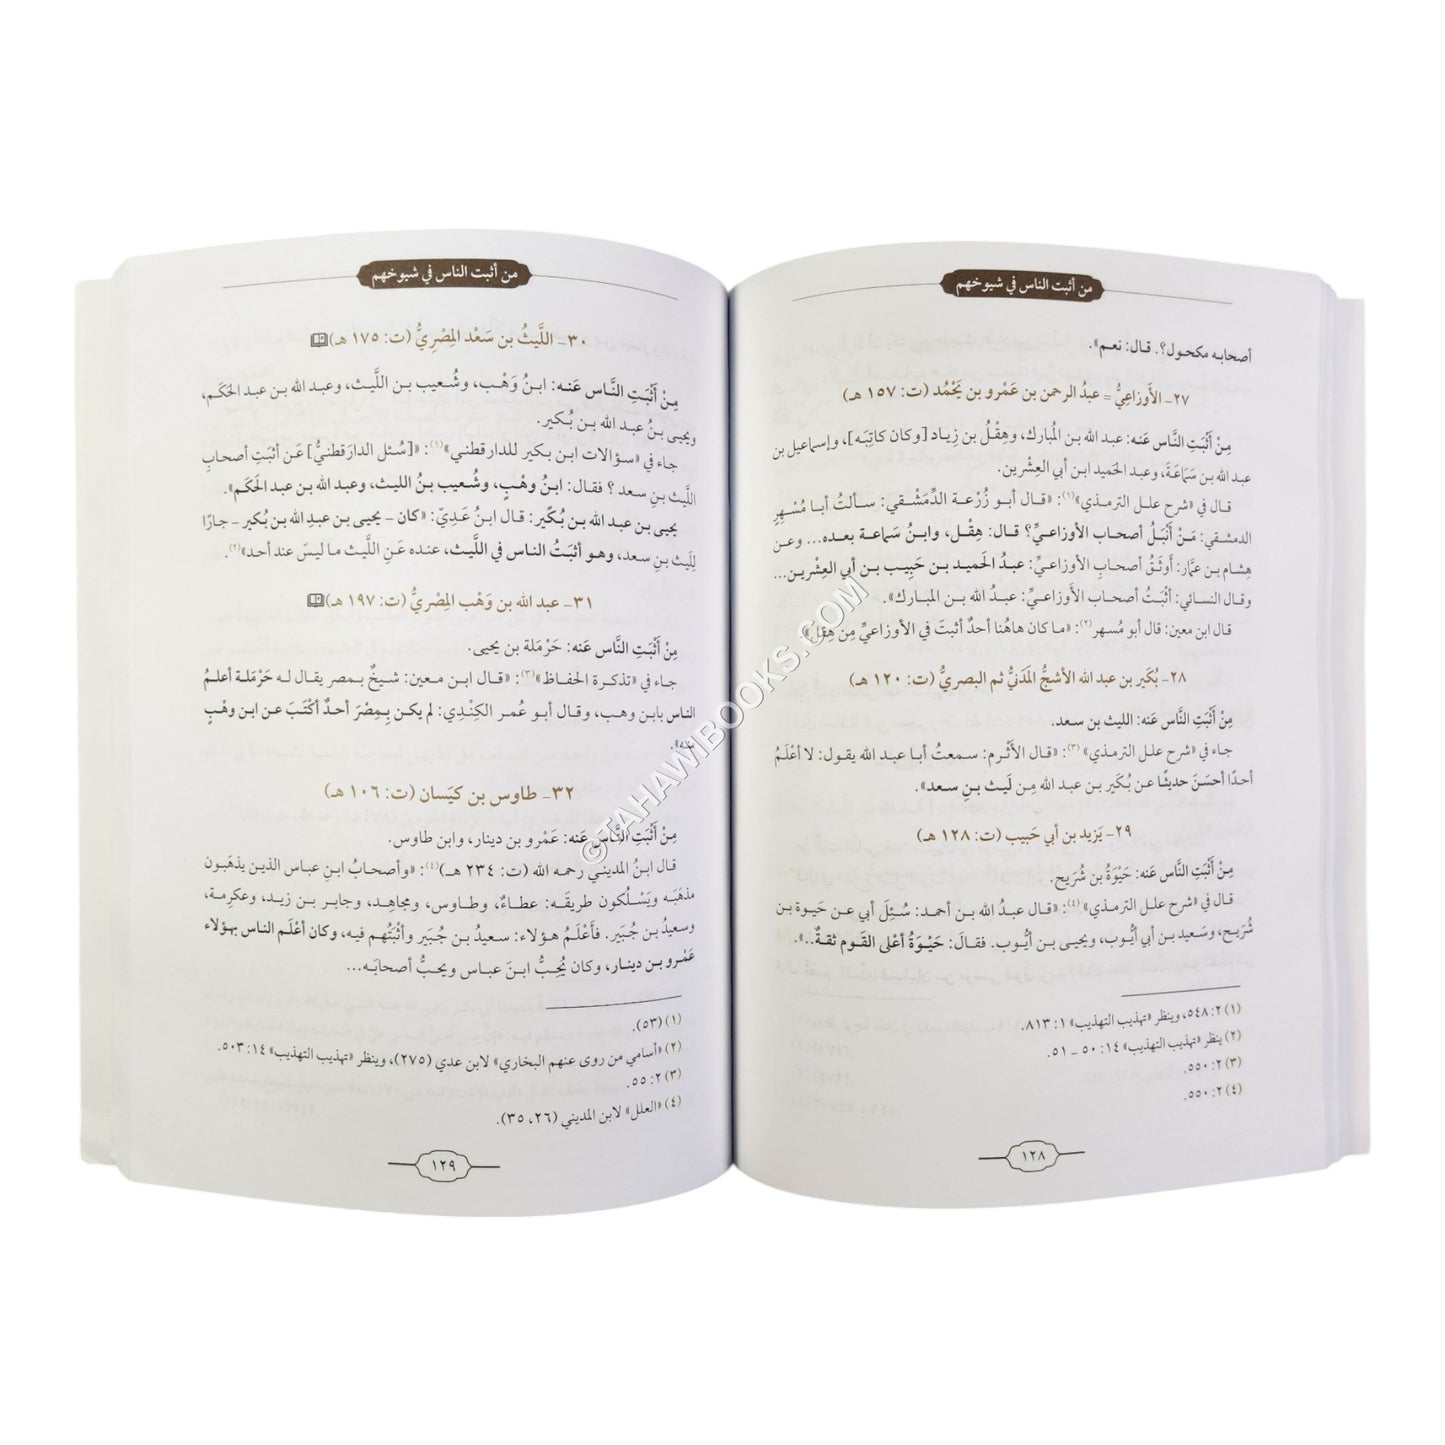 من أثبت الناس في شيوخهم
أصحابه مكحول؟. قال: نعم».
٢٧- الأَوزاعِيُّ = عبدُ الرحمن بن عَمْرو بن يَحْمُد (ت: ١٥٧ هـ)
مِنْ أَثْبَتِ النَّاس عَنه: عبد الله بن المُبارك، وهِقْلُ بن زِياد [وكان كاتِبَه]، وإسماعيل بن
عبد الله بن سَمَاعَةَ، وعبد الحَميد ابن أبي العِشْرين.
قال في «شرح علل الترمذي»(١): «قال أبو زُرْعة الدِّمَشْقي: سألتُ أبا مُسْهِرٍ
الدمشقي: مَنْ أَنْبَلُ أصحاب الأوزاعيِّ؟ قال: هِقْل، وابنُ سَمَاعة بعده... وعن
هِشام بن عمَّار: أَوثَقُ أصحابِ الأوزاعيِّ: عبدُ الحَميد بن حَبِيب بن أبي العِشْرين...
وقال النسائي: أثبَتُ أصحاب الأَوزاعيِّ: عبدُ الله بن المبارك».
قال ابن معين: قال أبو مُسهر(٢): «ما كان هاهُنا أحدٌ أثبتَ في الأوزاعيِّ مِن هِقلِ»
٢٨- بُكَير بن عبد الله الأشجُّ المَدَنيُّ ثم البصريُّ (ت: ١٢٠ هـ)
مِنْ أَثْبَتِ النَّاس عَنه: الليث بن سعد.
جاء في «شرح علل الترمذي»(٣): «قال الأَثْرم: سمعتُ أبا عبد الله يقول: لا أعْلَمُ
أحدًا أحسَنَ حديثًا عن بُكَير بن عبد الله مِن لَيث بنِ سعد».
٢٩- يَزيد بن أبي حَبيب (ت: ١٢٨ هـ)
مِنْ أَثْبَتِ النَّاس عَنه: حَيْوَةُ بن شُرَيح.
قال في «شرح علل الترمذي»(٤): «قال عبدُ الله بن أحمد: سُئِلَ أبي عن حَيوة بن
شُرَيح، وسَعيد بن أبي أيُّوب، ويحيى بن أيُّوب. فقالَ: حَيْوَةُ أعْلى القَوم ثقةٌ..».
(١) ٢: ٥٤٨، وينظر «تهذيب التهذيب» ١: ٨١٣.
(٢) ينظر «تهذيب التهذيب» ١٤: ٥٠ ـ ٥١.
(٣) ٢: ٥٥٠.
(٤) ٢: ٥٥٠.
١٢٨
من أثبت الناس في شيوخهم
٣٠- اللَّيثُ بن سَعْد المِصْرِيُّ (ت: ١٧٥ هـ)
مِنْ أَثْبَتِ النَّاس عَنه: ابنُ وَهْب، وشُعيب بن اللَّيث، وعبد الله بن عبد الحَكم،
ويحيى بنُ عبد الله بن بُكير.
جاء في «سؤالات ابن بكير للدارقطني»(١): «[سُئل الدارَقطنيُّ] عَن أثبَتِ أصحابِ
اللَّيث بنِ سعد؟ فقال: ابنُ وهْبٍ، وشُعيب بنُ الليث، وعبد الله بن عبد الحَكَم».
يحيى بن عبد الله بن بُكَير: قال ابنُ عَدِيّ: «كان ـ يحيى بن عبدِ الله بن بُكير ـ جارًا
لِلَيث بنِ سعد، وهو أثبَتُ الناس في اللَّيث، عنده عَنِ اللَّيث ما ليسَ عند أحد»(٢).
٣١- عبد الله بن وَهْب المِصْريُّ (ت: ١٩٧ هـ)
مِنْ أَثْبَتِ النَّاس عَنه: حَرْمَلة بن يحيى.
جاء في «تذكرة الحفاظ»(٣): «قال ابن معين: شيخٌ بمصر يقال له حَرْمَلة أعلمُ
الناس بابن وهب، وقال أبو عُمر الكِنْدِي: لم يكن بِمِصْرَ أحدٌ أَكْتَبَ عن ابن وهْبٍ
منه».
٣٢- طاوس بن كَيَسان (ت: ١٠٦ هـ)
مِنْ أَثْبَتِ النَّاس عَنه: عَمْرو بن دينار، وابن طاوس.
قال ابنُ المديني رحمه الله (ت: ٢٣٤ هـ)(٤): «وأصحابُ ابنِ عباس الذين يذهَبون
مذهَبَه ويَسْلُكون طريقَه: عطاءٌ، وطاوس، ومجاهِد، وجابر بن زيد، وعكرِمة،
وسعيدُ بن جُبَير. فأعْلَمُ هؤلاء: سعيدُ بن جُبَير وأثْبَتُهم فيه، وكان أعْلَم الناس بهؤلاء
عَمْرو بن دينار، وكان يُحِبُّ ابنَ عباس ويحبُّ أصحابَه...
(١) (٥٣).
(٢) «أسامي من روى عنهم البخاري» لابن عدي (٢٧٥)، وينظر «تهذيب التهذيب» ١٤: ٥٠٣.
(٣) ٢: ٥٥.
(٤) «العلل» لابن المديني (٢٦، ٣٥).
١٢٩
©TAHAWIBOOKS.COM